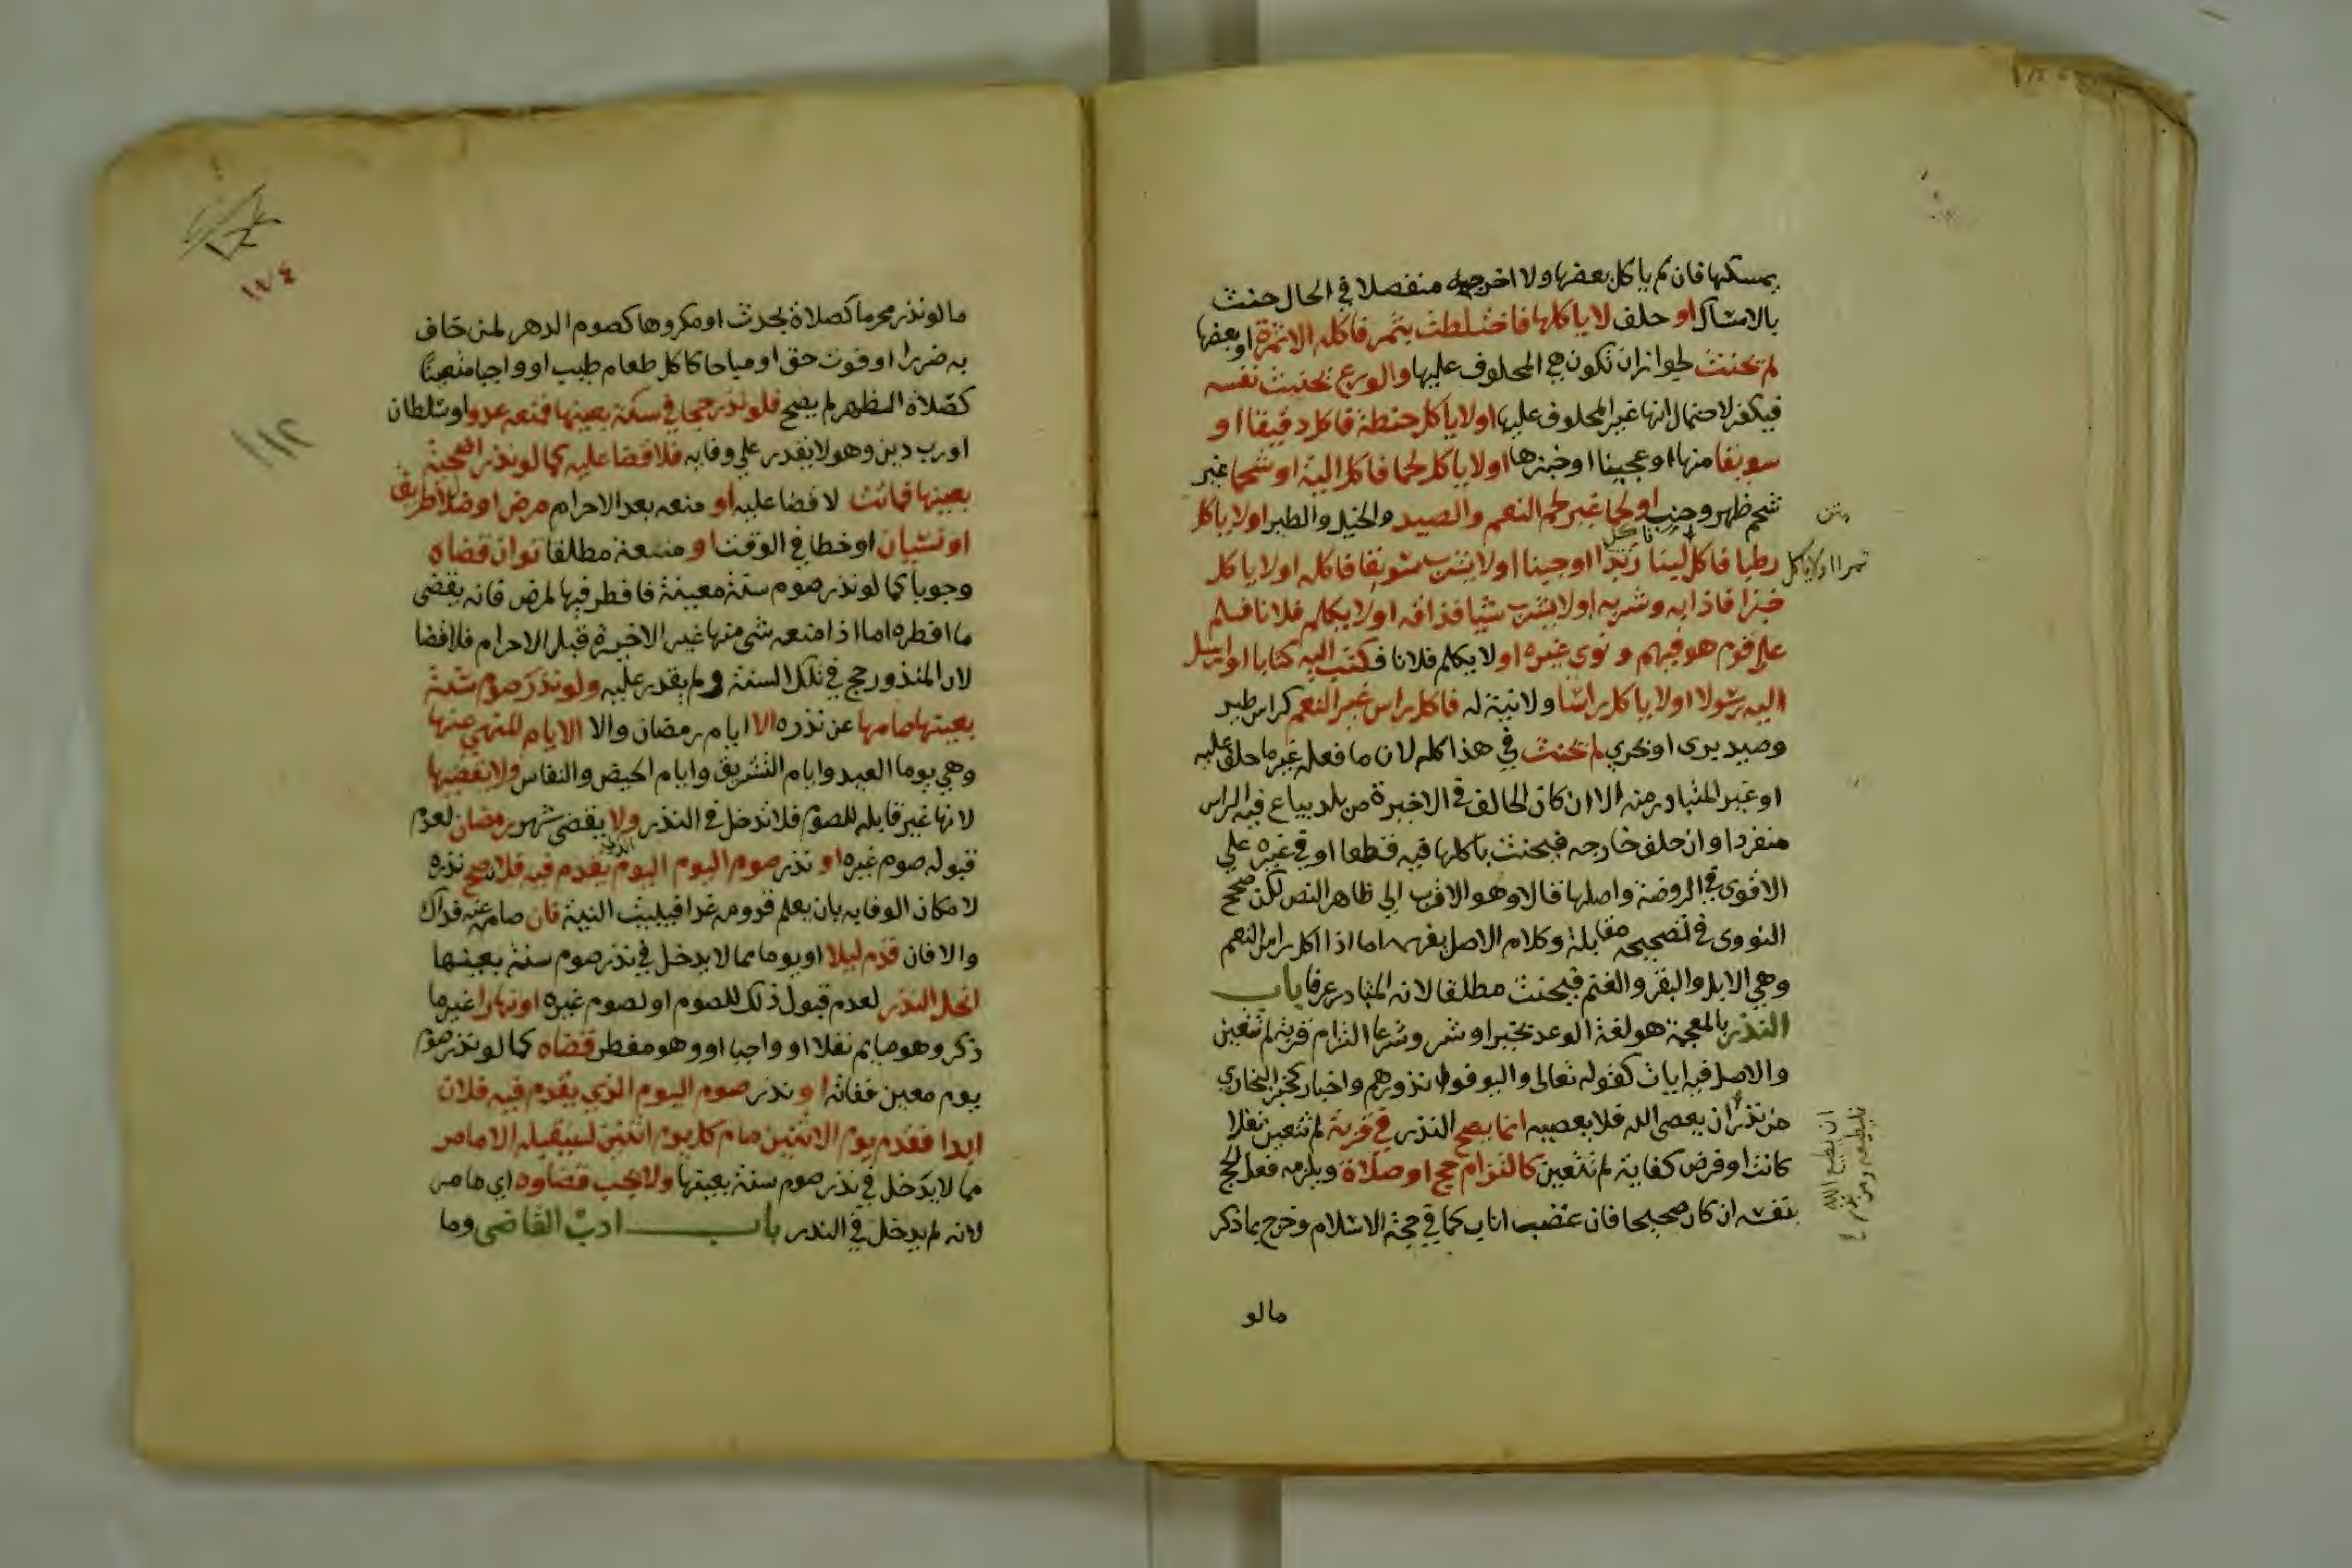 يمسكها فان لم ياكل بعضها ولا اخرجه منفصلا في الحال حنث
بالامساك او حلف لا ياكلها فاختلطت بتمر فاكله الا تمرة او بعضها
لم يحنث لجواز ان تكون هي المحلوف عليها والورع تحنيث نفسه
فيكفر لاحتمال انها غير المحلوف عليها او لا ياكل حنطة فاكل دقيقا او
سويقا منها او عجينا او خبزها او لا ياكل لحما فاكل الية او شحما غير
شحم ظهر وجنب او لحما غير لحم النعم والصيد والخيل والطير او لا ياكل
رطبا فاكل تمرا او لا ياكل لبنا فاكل زبدا او جبنا او لا يشرب سويقا فاكله او لا ياكل
خبزا فاذابه وشربه او لا يشرب شيا فذاقه او لا يكلم فلانا فسلم
علي قوم هو فيهم ونوي غيره او لا يكلم فلانا فكتب اليه كتابا او ارسل
اليه رسولا او لا ياكل راسا ولا نية له فاكل راس غير النعم كراس طير
وصيد بري او بحري لم يحنث في هذا كله لان ما فعله غير ما حلف عليه
او غير المتبادر منه الا ان كان الحالف في الاخيرة من بلد يباع فيه الراس
منفردا وان حلف خارجه فيحنث باكلها فيه قطعا او في غيره علي
الاقوي في الروضة واصلها قالا وهو الاقرب الي ظاهر النص لكن صحح
النووي في تصحيحه مقابله وكلام الاصل يفهمه اما اذا اكل راس النعم
وهي الابل والبقر والغنم فيحنث مطلقا لانه المتبادر عرفا باب
النذر بالمعجمة هو لغة الوعد بخير او شر وشرعا التزام قربة لم تتعين
والاصل فيه ايات كقوله تعالى وليوفوا نذورهم واخبار كخبر البخاري
من نذر ان يعصي الله فلا يعصيه انما يصح النذر في قربة لم تتعين نفلا
كانت او فرض كفاية لم تتعين كالتزام حج او صلاة ويلزمه فعل الحج
بنفسه ان كان صحيحا فان عضب اناب كما في حجة الاسلام وخرج بما ذكر
مالو
تمرا او لا ياكل
ان يطيع الله
فليطعه ومن نذر
١٧٤
١١٢
ما لو نذر محرما كصلاة بحدث او مكروها كصوم الدهر لمن خاف
به ضررا او فوت حق او مباحا كاكل طعام طيب او واجبا متعينا
كصلاة الظهر لم يصح فلو نذر حجا في سنة بعينها فمنعه عدو او سلطان
او رب دين وهو لا يقدر علي وفايه فلا قضا عليه كما لو نذر اضحية
بعينها فماتت لا قضا عليه او منعه بعد الاحرام مرض او ضلال طريق
او نسيان او خطا في الوقت او منعه مطلقا توان قضاه
وجوبا كما لو نذر صوم سنة معينة فافطر فيها لمرض فانه يقضي
ما افطره اما اذا منعه شي منها غير الاخيرة قبل الاحرام فلا قضا
لان المنذور حج في تلك السنة ولم يقدر عليه ولو نذر صوم سنة
بعينها صامها عن نذره الا ايام رمضان والا الايام المنهي عنها
وهي يوما العيد وايام التشريق وايام الحيض والنفاس ولا يقضيها
لانها غير قابله للصوم فلا تدخل في النذر ولا يقضي شهر رمضان لعدم
قبوله صوم غيره او نذر صوم اليوم اليوم الذي يقدم فيه فلان صح نذره
لامكان الوفا به بان يعلم قدومه غدا فيبيت النية فان صامه عنه فذاك
والا فان قدم ليلا او يوما مما لا يدخل في نذر صوم سنة بعينها
انحل النذر لعدم قبول ذلك للصوم او لصوم غيره او نهارا غير ما
ذكر وهو صايم نفلا او واجبا او وهو مفطر قضاه كما لو نذر صوم
يوم معين ففاته او نذر صوم اليوم الذي يقدم فيه فلان
ابدا فقدم يوم الاثنين صام كل يوم اثنين يستقبله الا ما مر
مما لا يدخل في نذر صوم سنة بعينها ولا يجب قضاوه اي ما مر
لانه لم يدخل في النذر باب ادب القاضي وما